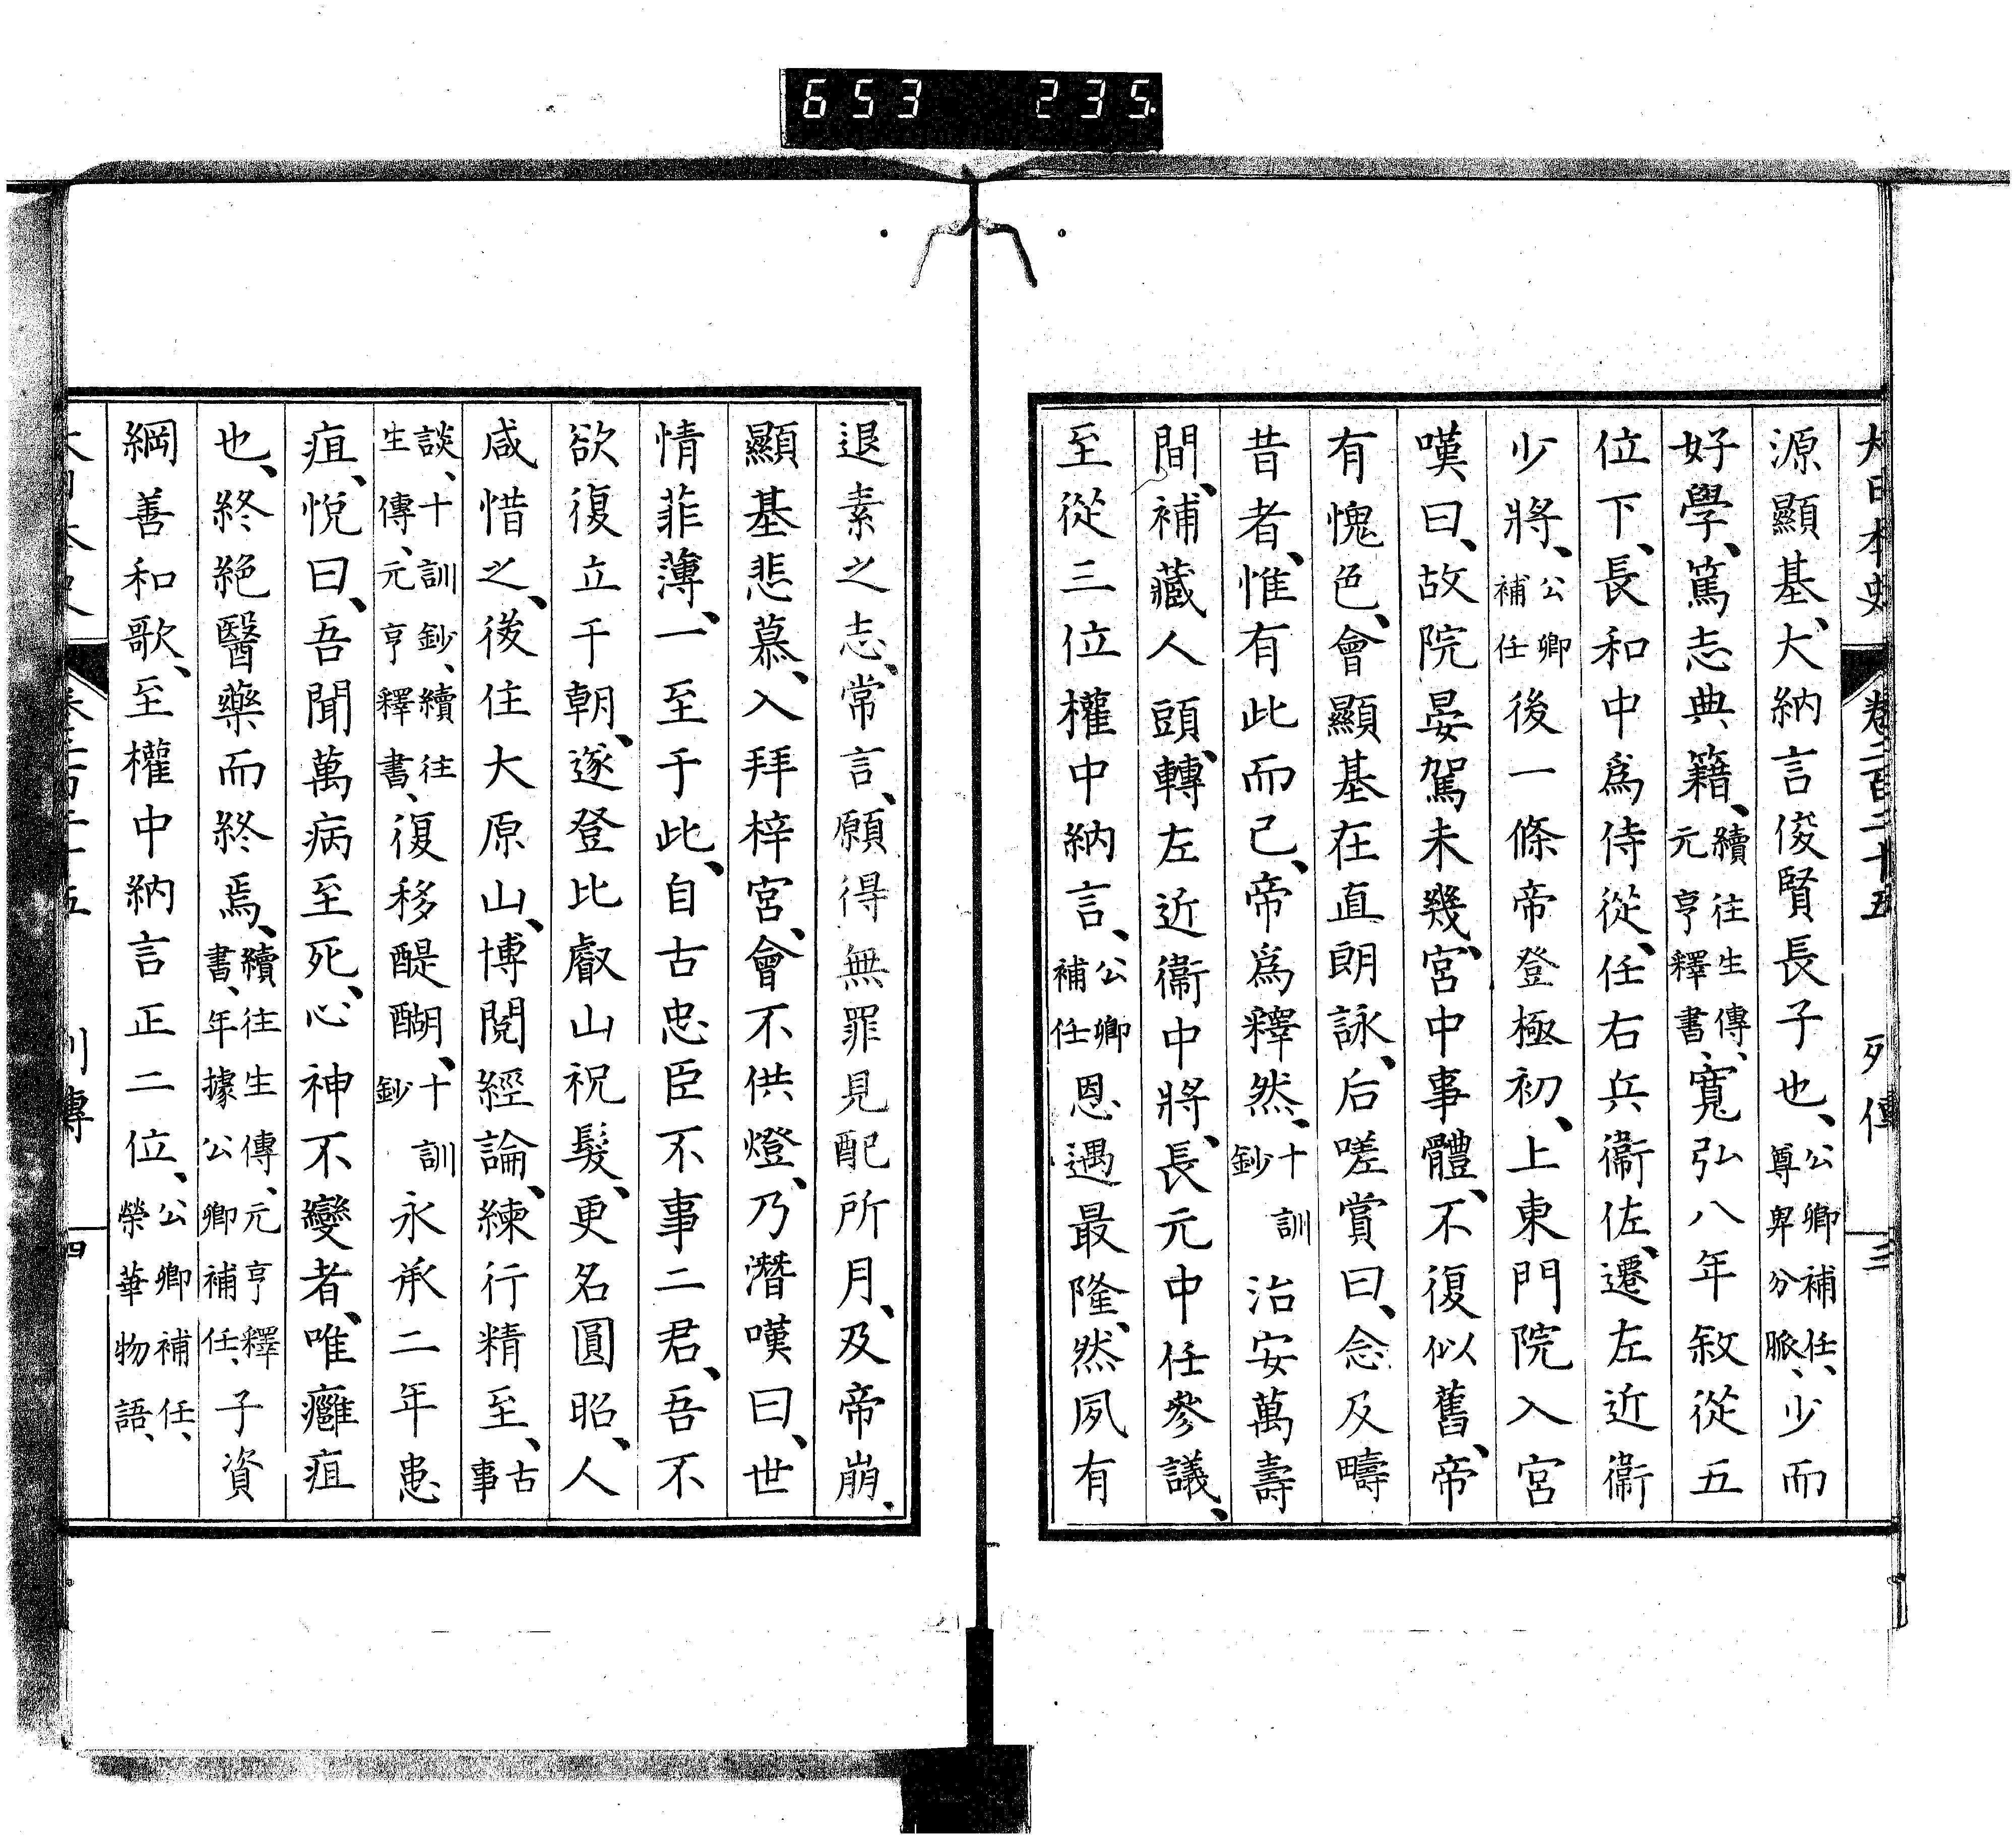 653 235
大日本史 卷二百二十五 列傳 三
源顯基、大納言俊賢長子也、公卿補任、尊卑分脈、少而
好學、篤志典籍、續往生傳、元亨釋書、寬弘八年敘從五
位下、長和中爲侍從、任右兵衞佐、遷左近衞
少將、公卿補任後一條帝登極初、上東門院入宮
嘆曰、故院晏駕未幾、宮中事體、不復似舊、帝
有愧色、會顯基在直朗詠、后嗟賞曰、念及疇
昔者、惟有此而已、帝爲釋然、十訓鈔治安萬壽
間、補藏人頭、轉左近衞中將、長元中任參議、
至從三位權中納言、公卿補任恩遇最隆、然夙有
退素之志、常言、願得無罪見配所月、及帝崩、
顯基悲慕、入拜梓宮、會不供燈、乃潛嘆曰、世
情菲薄、一至于此、自古忠臣不事二君、吾不
欲復立于朝、遂登比叡山祝髮、更名圓昭、人
咸惜之、後住大原山、博閱經論、練行精至、古事
談、十訓鈔、續往生傳、元亨釋書、復移醍醐、十訓鈔永承二年患
疽、悅曰、吾聞萬病至死、心神不變者、唯癰疽
也、終絕醫藥而終焉、續往生傳、元亨釋書、年據公卿補任、子資
綱善和歌、至權中納言正二位、公卿補任、榮華物語、
大日本史 卷二百二十五 列傳 四